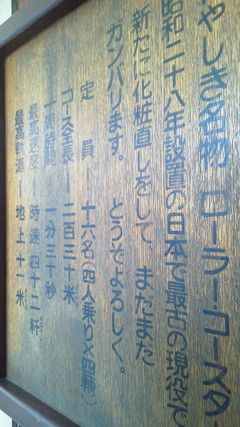 やしき名物 ローラーコースタ
昭和二十八年設置の日本で最古の現役で
新たに化粧直しをして、まだまだ
ガンバります。 どうぞよろしく。
定 員 ― 十六名(四人乗り×四輌)
コース全長 ― 二百三十米
一周時間 ― 一分三十秒
最高速度 ― 時速四十二粁
最高軌道 ― 地上十一米